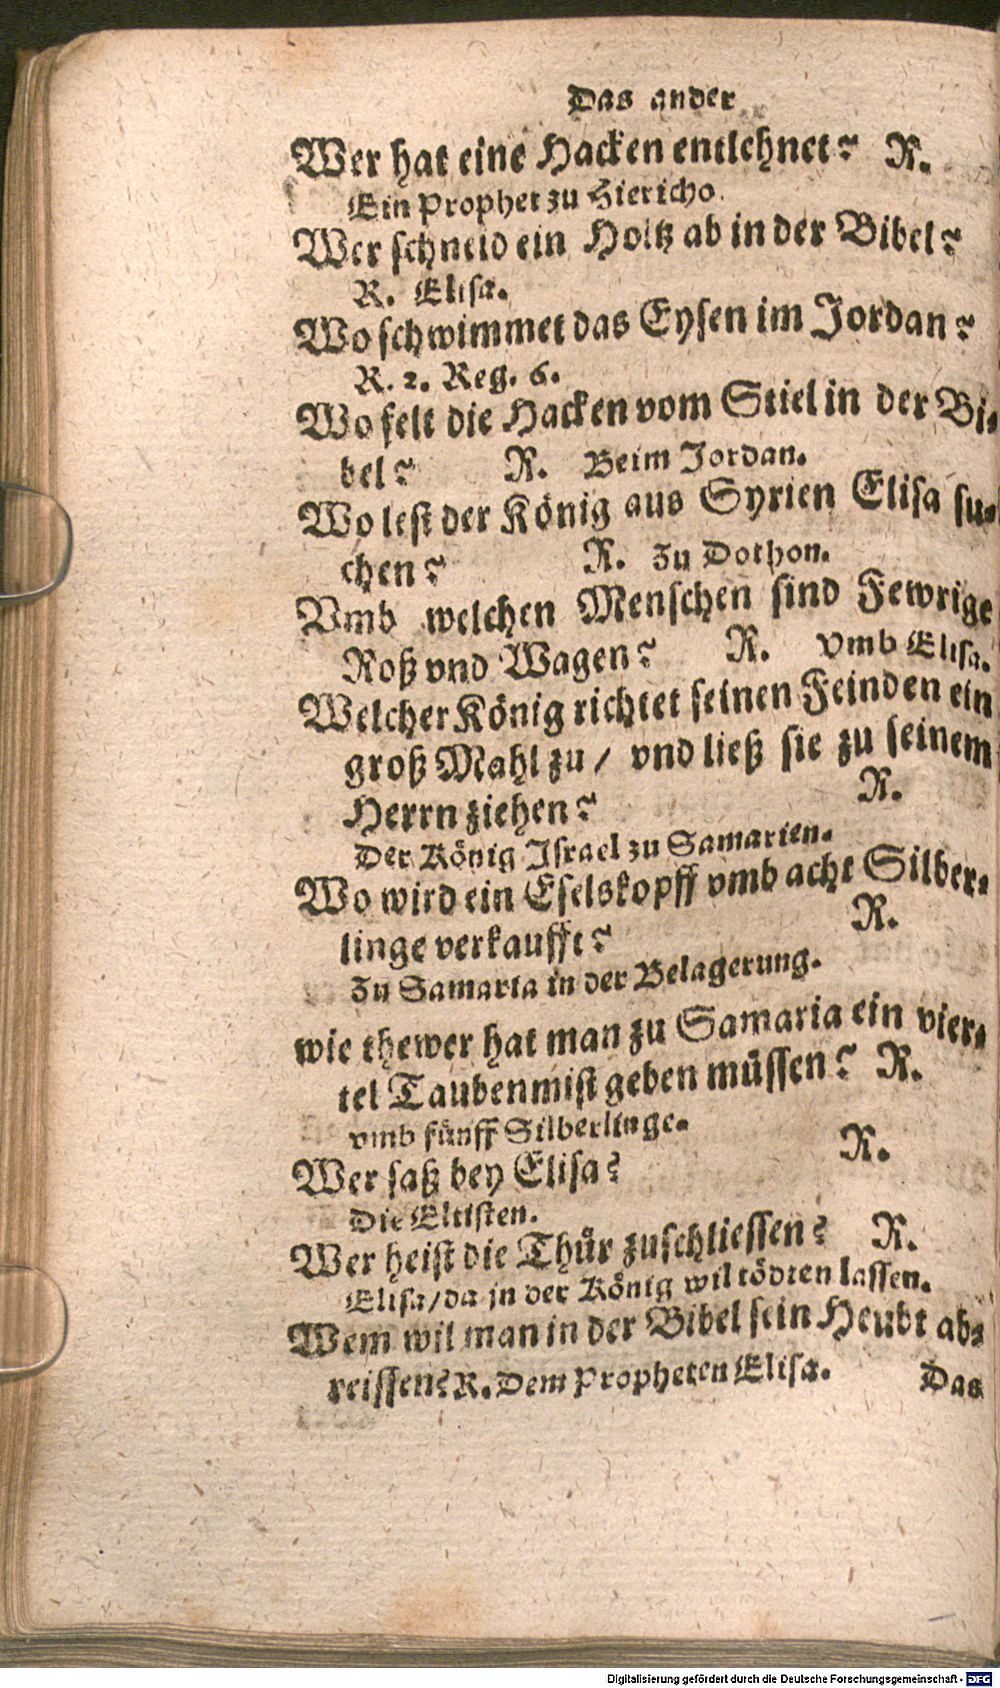 Das ander
Wer hat eine Hacken entlehnet? R.
Ein Prophet zu Hiericho.
Wer schneid ein Holtz ab in der Bibel?
R. Elisa.
Wo schwimmet das Eysen im Jordan?
R. 2. Reg. 6.
Wo felt die Hacken vom Stiel in der Bi-
bel? R. Beim Jordan.
Wo lest der König aus Syrien Elisa su-
chen? R. Zu Dothon.
Vmb welchen Menschen sind Fewrige
Roß vnd Wagen? R. Vmb Elisa.
Welcher König richtet seinen Feinden ein
groß Mahl zu / vnd ließ sie zu seinem
Herrn ziehen? R.
Der König Israel zu Samarien.
Wo wird ein Eselskopff vmb acht Silber-
linge verkaufft? R.
Zu Samaria in der Belagerung.
wie thewer hat man zu Samaria ein vier-
tel Taubenmist geben müssen? R.
vmb fünff Silberlinge.
Wer saß bey Elisa? R.
Die Eltisten.
Wer heist die Thür zuschliessen? R.
Elisa/da jn der König wil tödten lassen.
Wem wil man in der Bibel sein Heubt ab-
reissen? R. Dem Propheten Elisa. Das
Digitalisierung gefördert durch die Deutsche Forschungsgemeinschaft - DFG